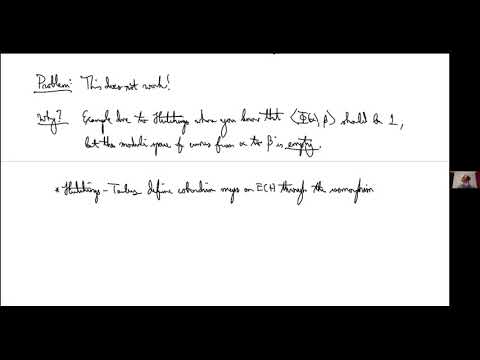 Problem: This does not work!
Why? Example due to Hutchings where you know that ⟨Φ(α), β⟩ should be 1,
but the moduli space of curves from α to β is empty.
* Hutchings-Taubes define cobordism maps on ECH through the isomorphism